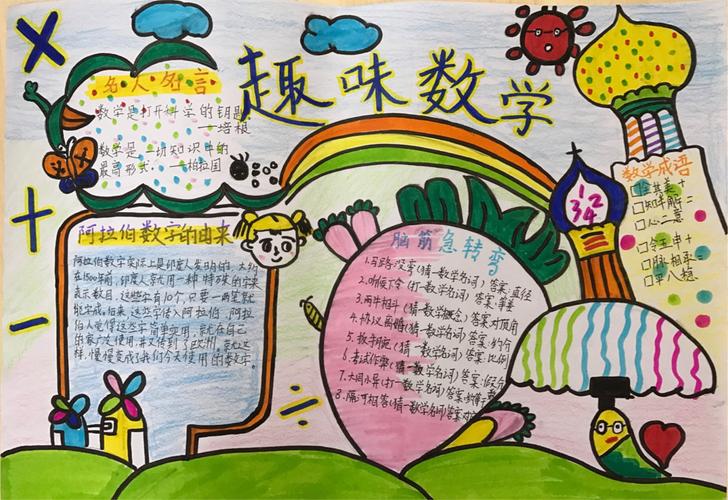 趣味数学
名人名言
数学是打开科学的钥匙
——培根
数学是一切知识中的
最高形式。——柏拉图
阿拉伯数字的由来
阿拉伯数字实际上是印度人发明的。大约
在1500年前,印度人就用一种特殊的字来
表示数目,这些字有10个,只要一两笔就
能写成。后来,这些字传入阿拉伯,阿拉
伯人觉得这些字简单实用,就在自己
的国家广泛使用,并又传到了欧洲。就这
样,慢慢变成了我们今天使用的数字。
脑筋急转弯
1.马路没弯(猜一数学名词)答案:直径
2.听候下令(打一数学名词)答案:等要
3.两牛相斗(猜一数学概念)答案:对顶角
4.协议离婚(猜一数学名词)答案:约分
5.扳手腕(猜一数学名词)答案:比例
6.考试作弊(猜一数学名词)答案:假分
7.大同小异(打一数学名词)答案:
8.隔河相答(猜一数学名词)答案:对
数学成语
共美+
□知半解=
□心二意
+
□脉相承=
□里八想
1
2
3 4
× + − ÷